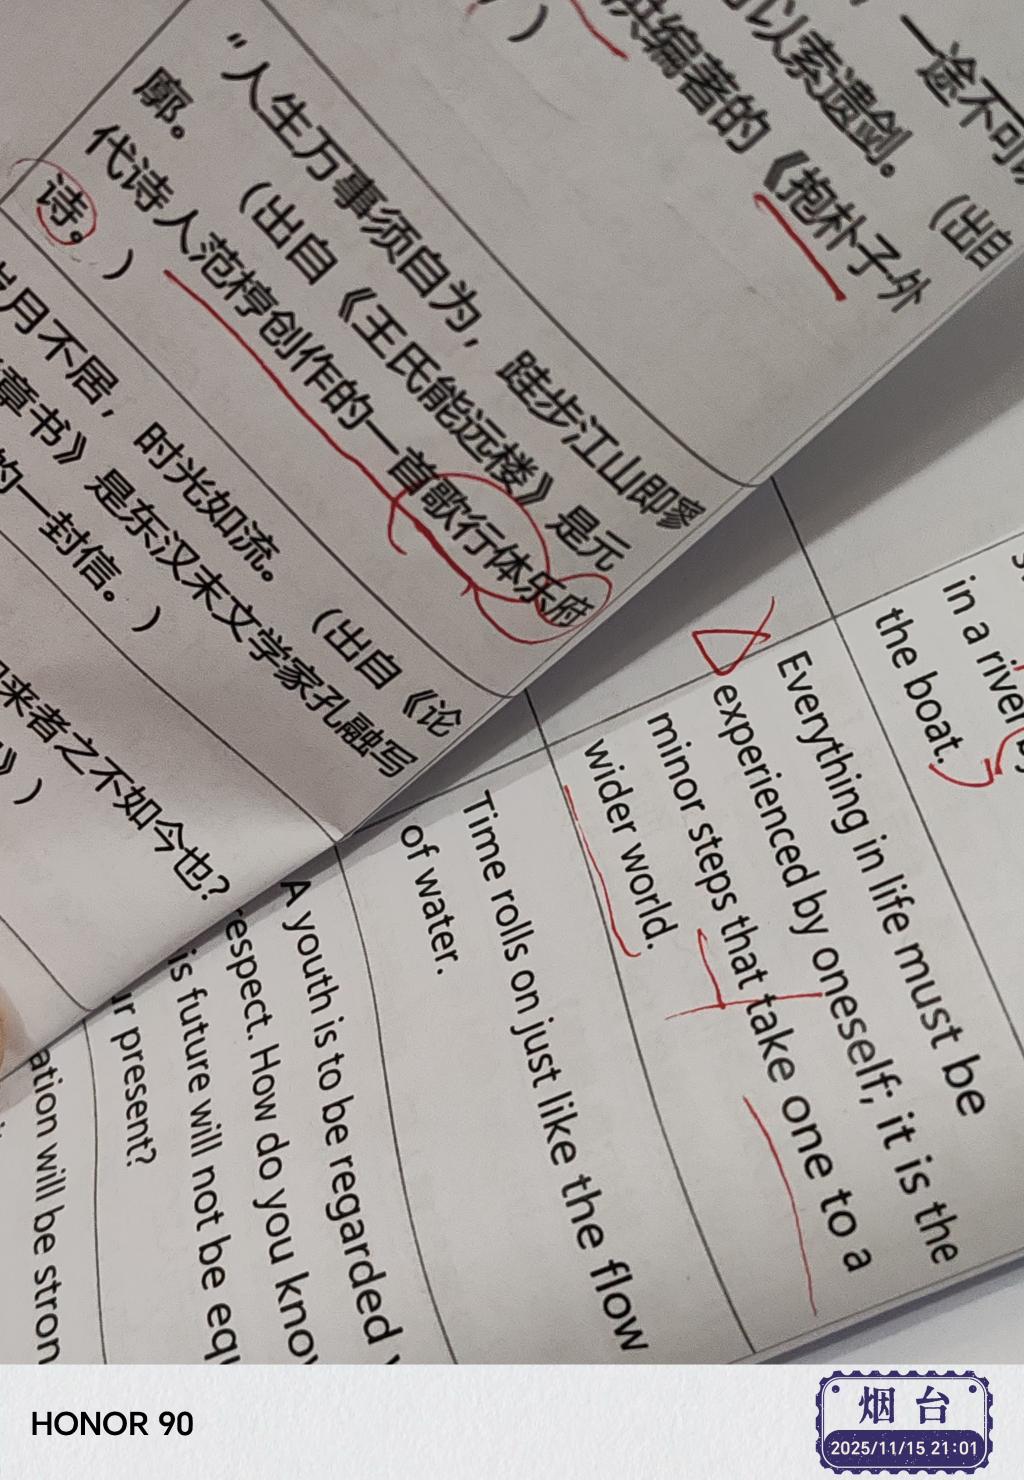 ，一途不可以
可以索遗剑。（出自
洪编著的《抱朴子外
）
“人生万事须自为，跬步江山即寥
廓。（出自《王氏能远楼》是元
代诗人范梈创作的一首歌行体乐府
诗。）
岁月不居，时光如流。（出自《论
章书》是东汉末文学家孔融写
的一封信。）
来者之不如今也？
》）
in a river by
the boat.
Everything in life must be
experienced by oneself; it is the
minor steps that take one to a
wider world.
Time rolls on just like the flow
of water.
A youth is to be regarded
respect. How do you know
is future will not be equ
ur present?
ation will be stron
HONOR 90
烟台
2025/11/15 21:01